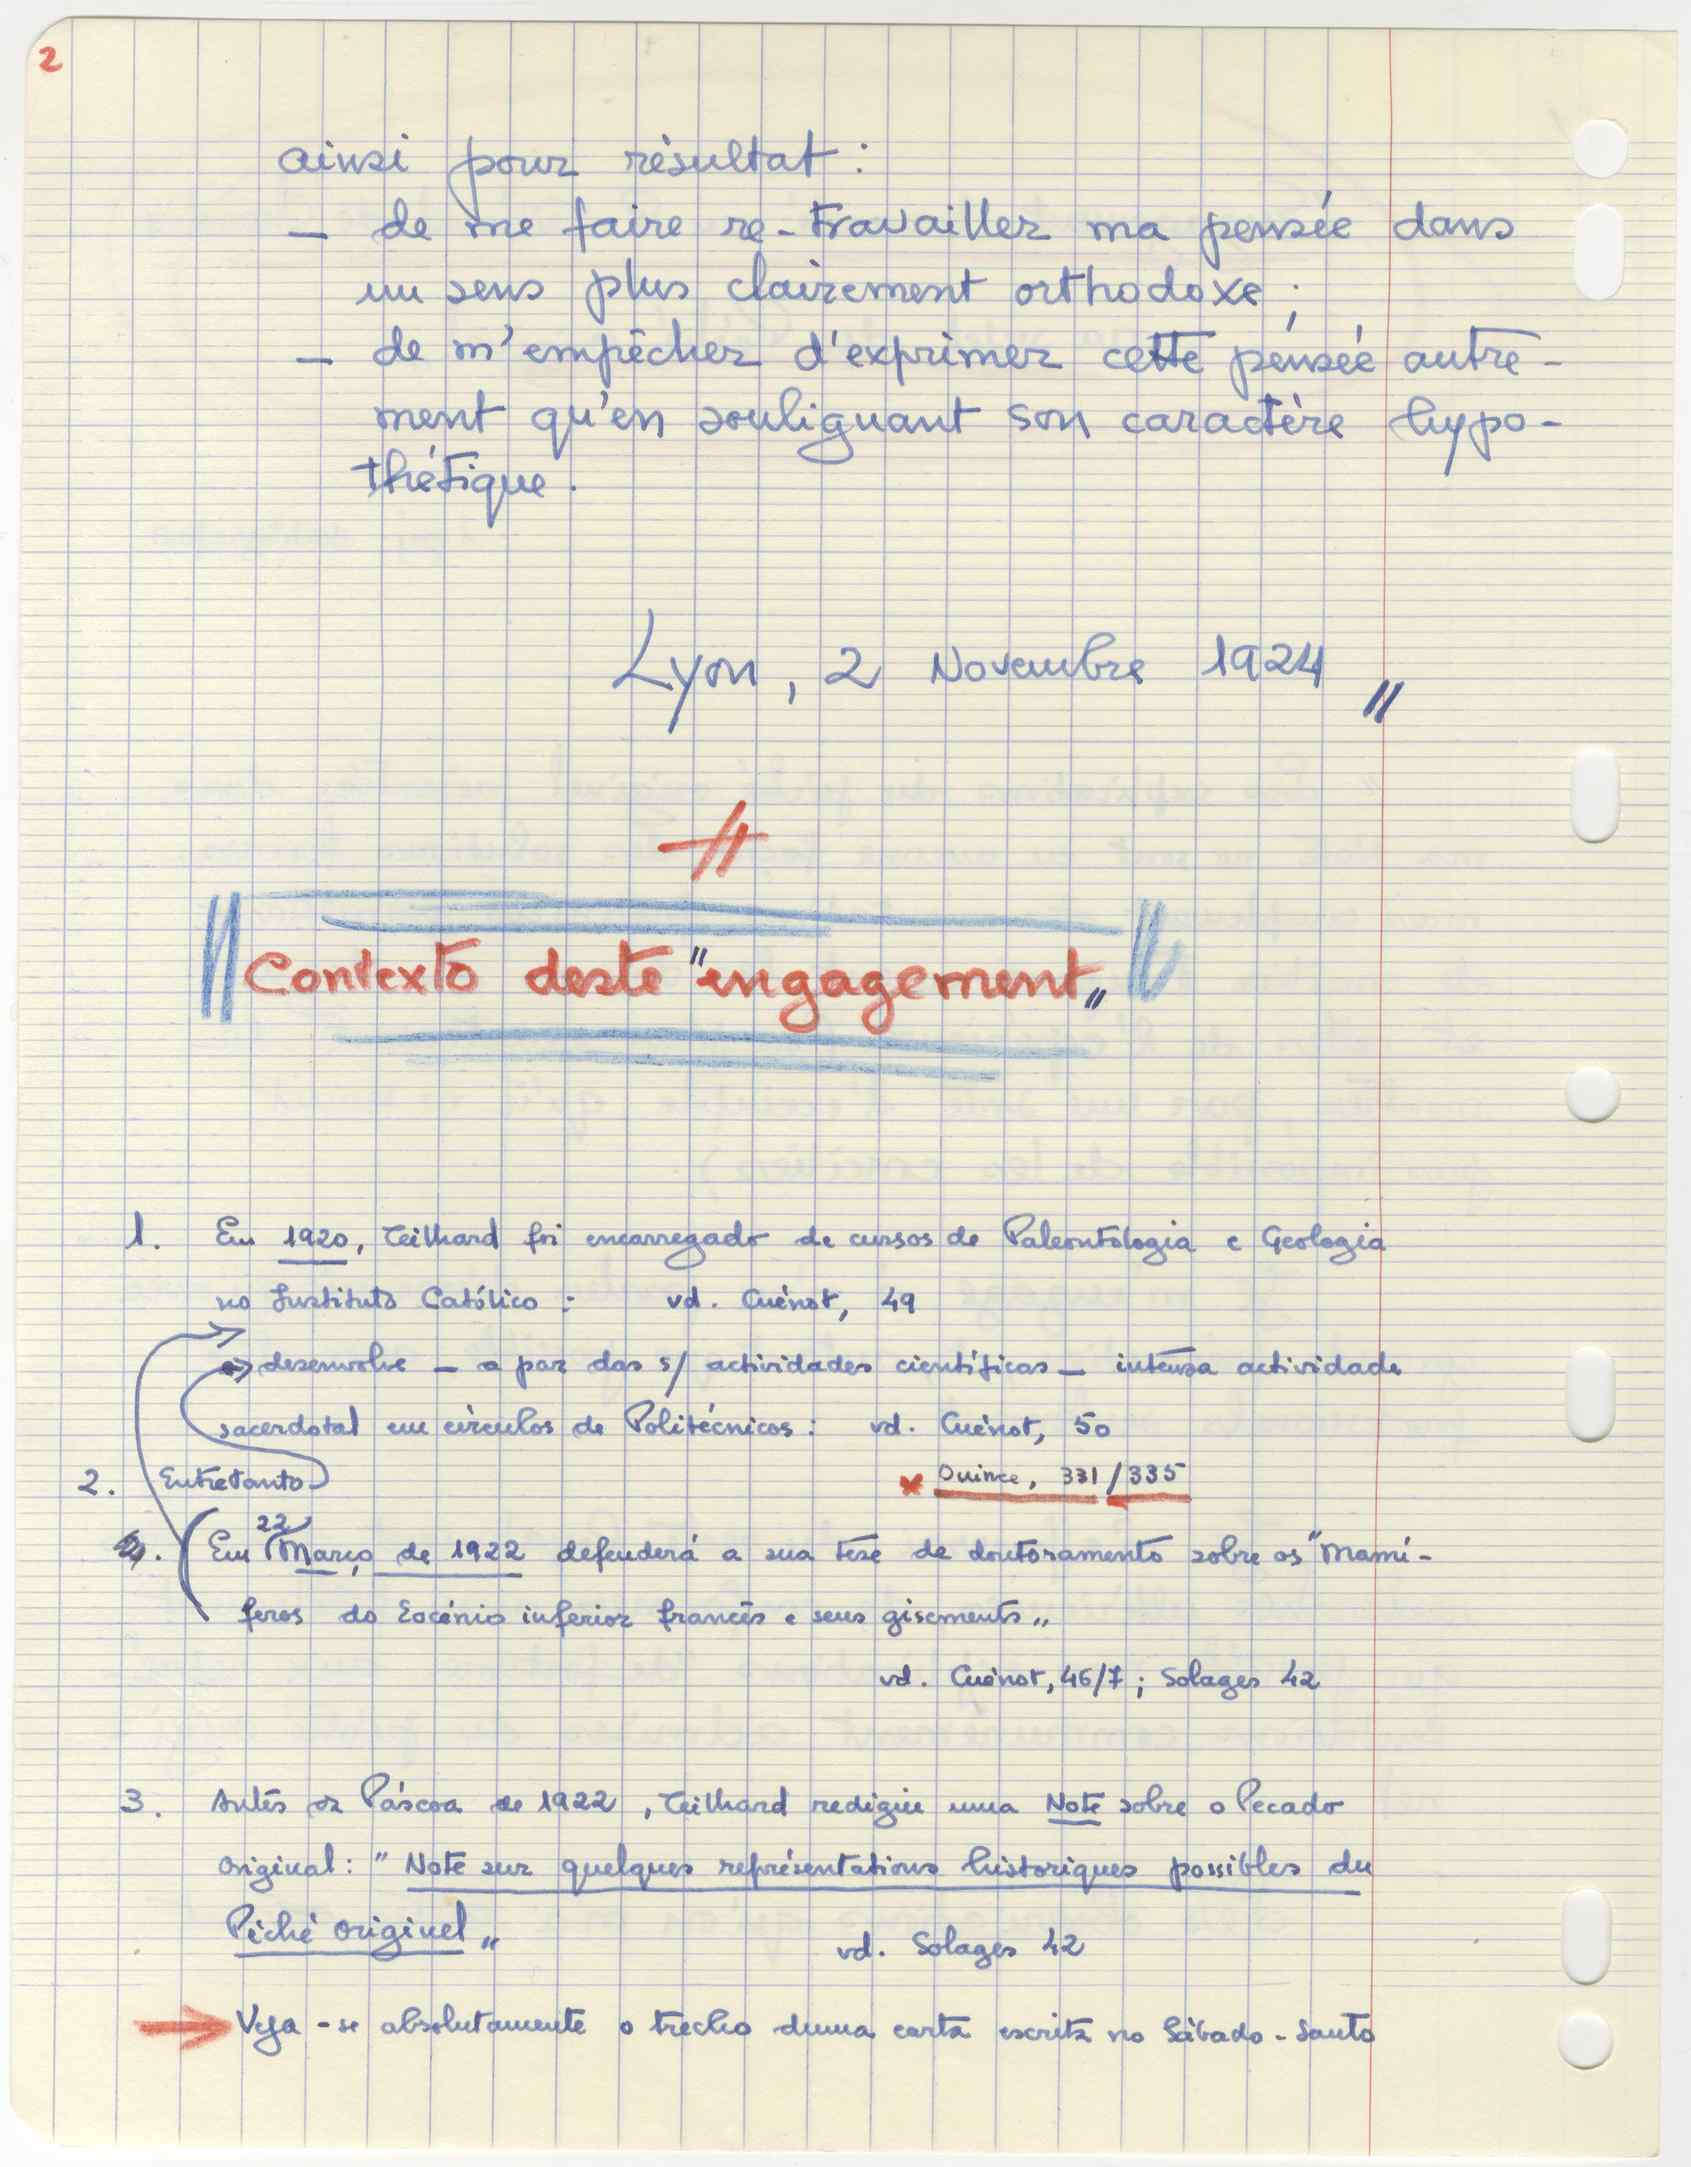 2
ainsi pour résultat :
— de me faire re-travailler ma pensée dans
un sens plus clairement orthodoxe ;
— de m'empêcher d'exprimer cette pensée autre-
ment qu'en soulignant son caractère hypo-
thétique.
Lyon, 2 Novembre 1924 "
Contexto deste "engagement"
1. Em 1920, Teilhard foi encarregado de cursos de Paleontologia e Geologia
no Instituto Católico : vd. Cuénot, 49
desenvolve — a par das s/ actividades científicas — intensa actividade
sacerdotal em círculos de Politécnicos : vd. Cuénot, 50
2. Entretanto
* Ouince, 331/335
Em 22 Março de 1922 defenderá a sua tese de doutoramento sobre os "Mamí-
feros do Eocénio inferior francês e seus gisements"
vd. Cuénot, 46/7 ; Solages 42
3. Antes da Páscoa de 1922, Teilhard redigiu uma Note sobre o Pecado
Original : "Note sur quelques représentations historiques possibles du
Péché originel" vd. Solages 42
→ Veja-se absolutamente o trecho duma carta escrita no Sábado-Santo